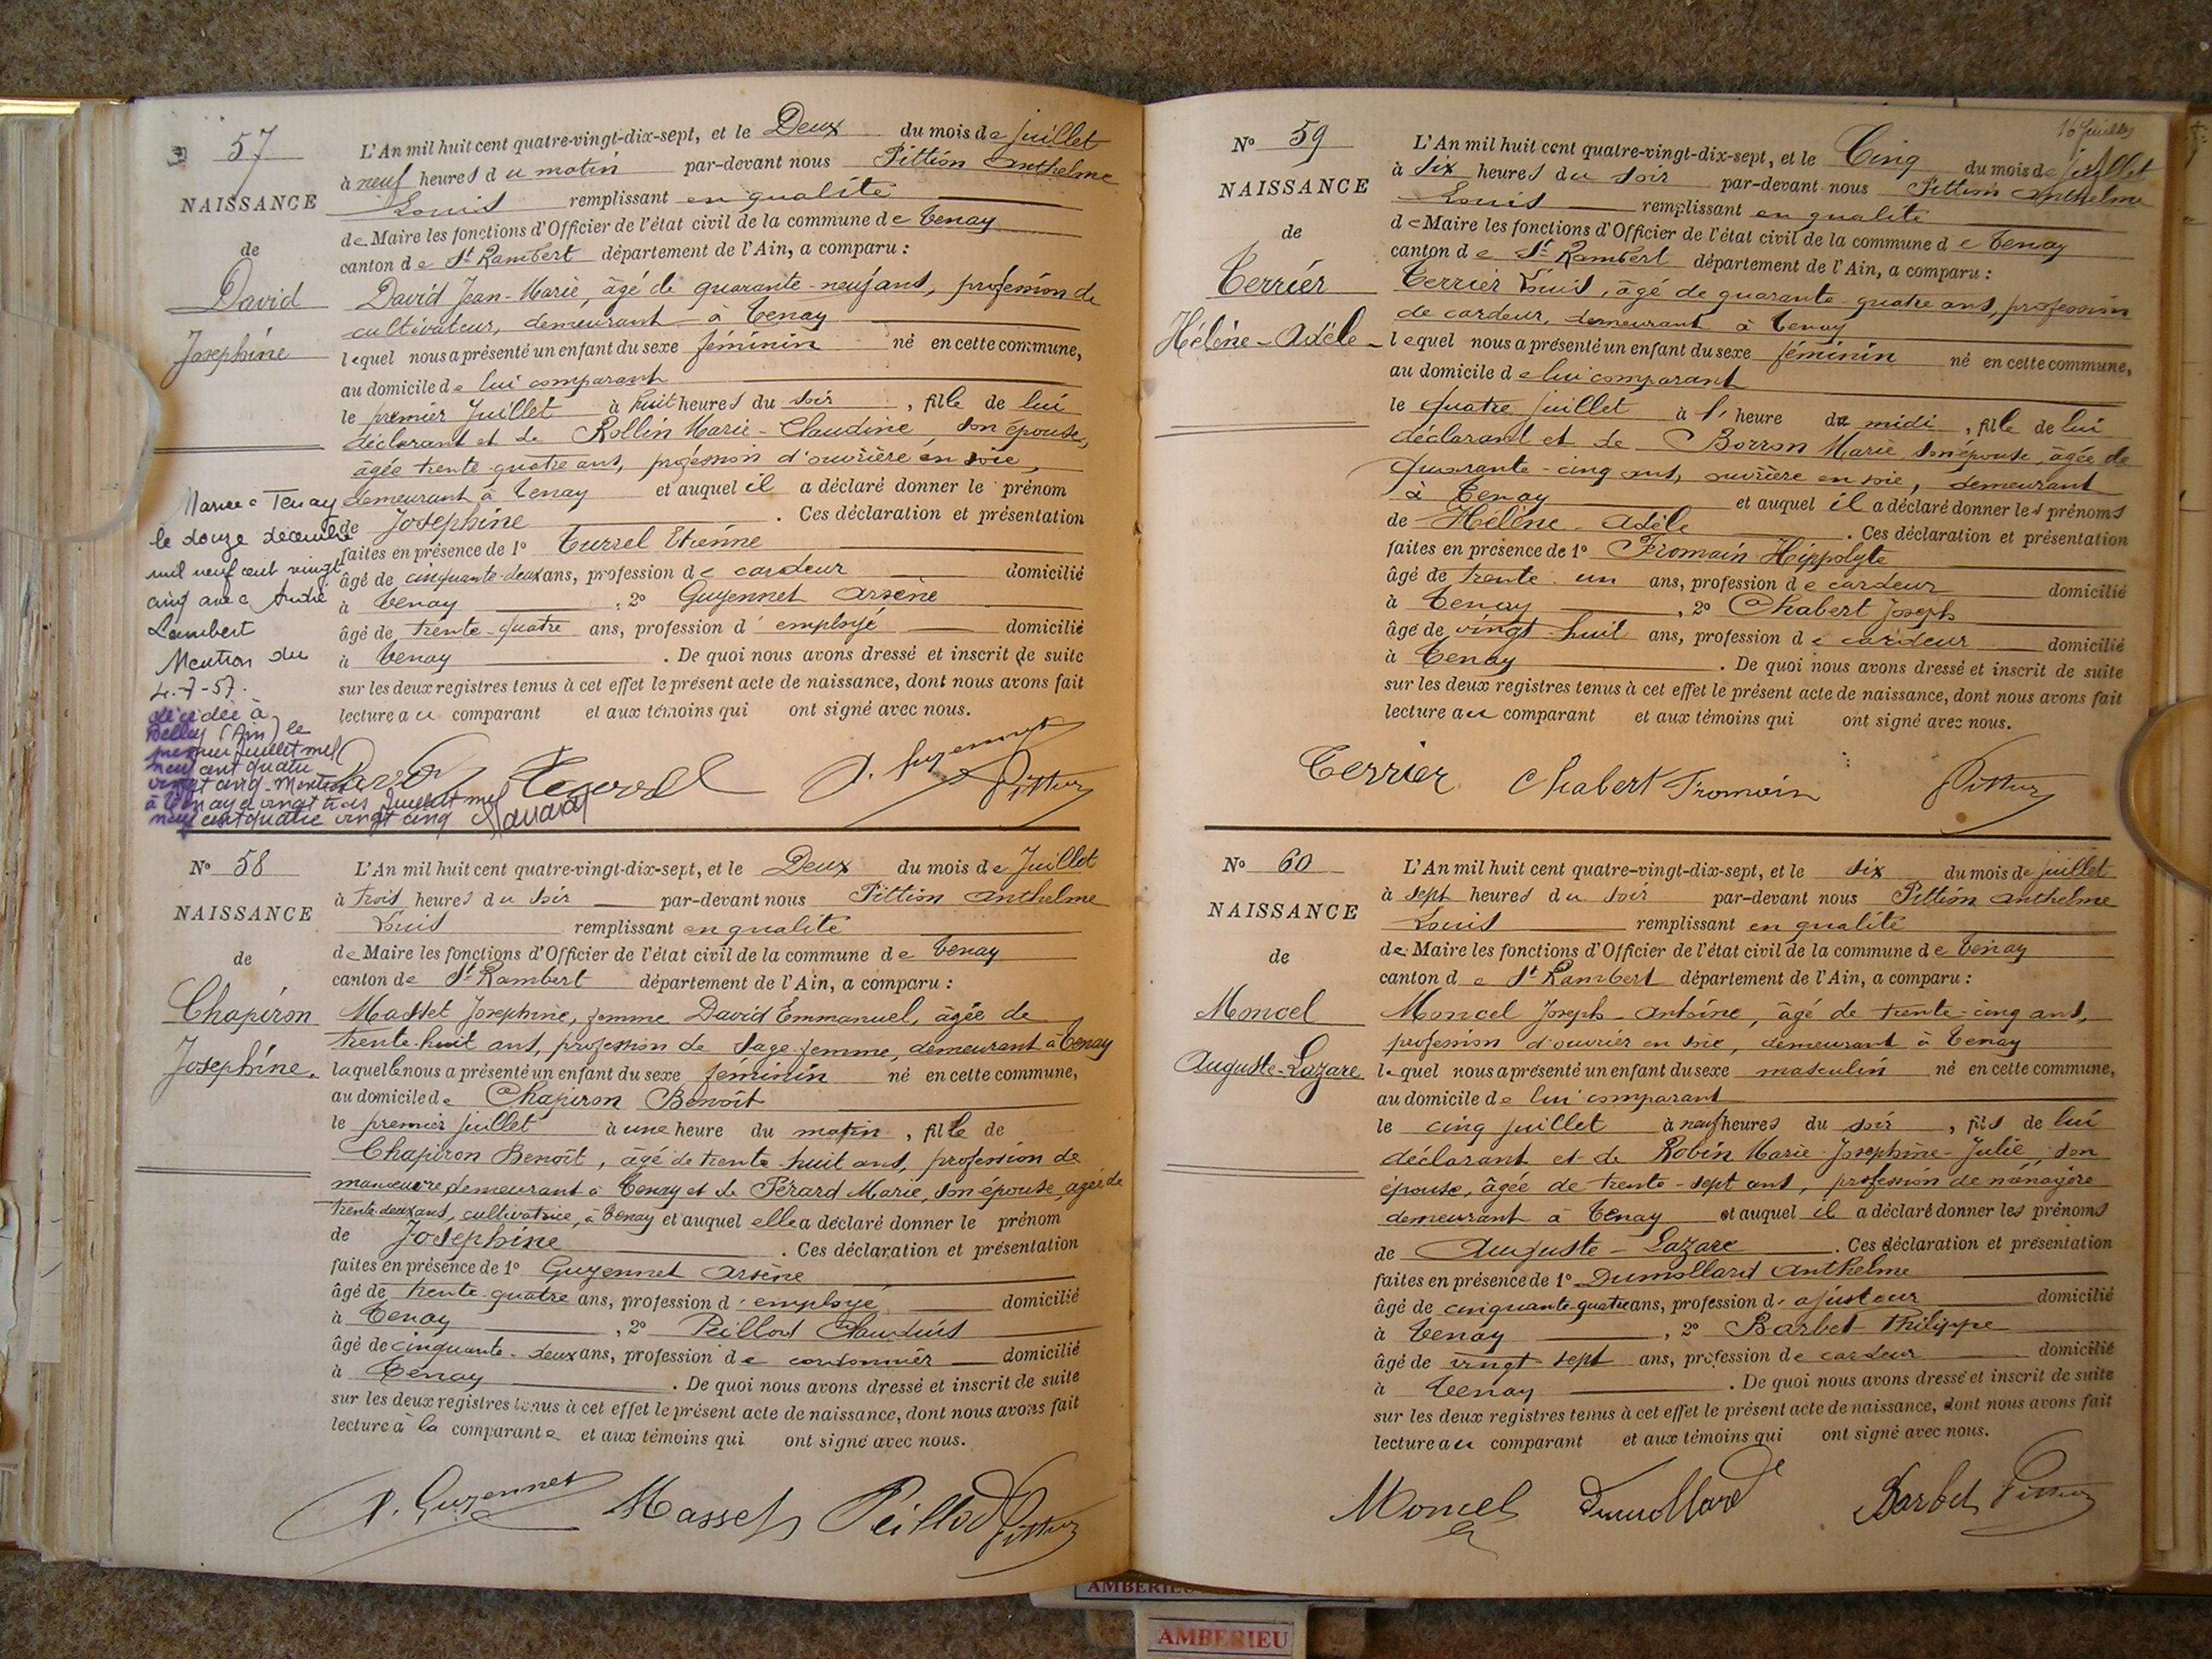 57
NAISSANCE
de
David
Josephine
L'An mil huit cent quatre-vingt-dix-sept, et le Deux du mois de juillet
à neuf heures du matin par-devant nous Pittion Anthelme
Louis remplissant en qualité
de Maire les fonctions d'Officier de l'état civil de la commune de Tenay
canton de St Rambert département de l'Ain, a comparu :
David Jean-Marie, âgé de quarante-neuf ans, profession de
cultivateur, demeurant à Tenay
lequel nous a présenté un enfant du sexe féminin né en cette commune,
au domicile de lui comparant
le premier Juillet à huit heures du soir, fille de lui
déclarant et de Rollin Marie-Claudine, son épouse,
âgée trente-quatre ans, profession d'ouvrière en soie,
demeurant à Tenay et auquel il a déclaré donner le prénom
de Josephine. Ces déclaration et présentation
faites en présence de 1° Turrel Etienne
âgé de cinquante-deux ans, profession de cardeur domicilié
à Tenay, 2° Guyennet Arsène
âgé de trente-quatre ans, profession d'employé domicilié
à Tenay. De quoi nous avons dressé et inscrit de suite
sur les deux registres tenus à cet effet le présent acte de naissance, dont nous avons fait
lecture au comparant et aux témoins qui ont signé avec nous.
Mariée à Tenay
le douze décembre
mil neuf cent vingt
cinq avec André
Lambert
Mention du
4-7-57.
décédée à
Belley (Ain) le
premier juillet mil
neuf cent quatre
vingt cinq. Mention
à Tenay le vingt trois juillet mil
neuf cent quatre vingt cinq
David Turrel A. Guyennet Pittion
N° 58
NAISSANCE
de
Chapiron
Josephine.
L'An mil huit cent quatre-vingt-dix-sept, et le Deux du mois de Juillet
à trois heures du soir par-devant nous Pittion Anthelme
Louis remplissant en qualité
de Maire les fonctions d'Officier de l'état civil de la commune de Tenay
canton de St Rambert département de l'Ain, a comparu :
Masset Josephine, femme David Emmanuel, âgée de
trente-huit ans, profession de sage-femme, demeurant à Tenay
laquelle nous a présenté un enfant du sexe féminin né en cette commune,
au domicile de Chapiron Benoît
le premier juillet à une heure du matin, fille de
Chapiron Benoît, âgé de trente-huit ans, profession de
manœuvre, demeurant à Tenay et de Pérard Marie, son épouse, agée de
trente-deux ans, cultivatrice, à Tenay et auquel elle a déclaré donner le prénom
de Josephine. Ces déclaration et présentation
faites en présence de 1° Guyennet Arsène
âgé de trente-quatre ans, profession d'employé domicilié
à Tenay, 2° Peillod Claudius
âgé de cinquante-deux ans, profession de cordonnier domicilié
à Tenay. De quoi nous avons dressé et inscrit de suite
sur les deux registres tenus à cet effet le présent acte de naissance, dont nous avons fait
lecture à la comparante et aux témoins qui ont signé avec nous.
A. Guyennet Masset Peillod Pittion
16 juillet
N° 59
NAISSANCE
de
Terrier
Hélène-Adèle
L'An mil huit cent quatre-vingt-dix-sept, et le Cinq du mois de juillet
à six heures du soir par-devant nous Pittion Anthelme
Louis remplissant en qualité
de Maire les fonctions d'Officier de l'état civil de la commune de Tenay
canton de St Rambert département de l'Ain, a comparu :
Terrier Louis, âgé de quarante-quatre ans, profession
de cardeur, demeurant à Tenay
lequel nous a présenté un enfant du sexe féminin né en cette commune,
au domicile de lui comparant
le quatre juillet à l'heure de midi, fille de lui
déclarant et de Borron Marie son épouse, âgée de
quarante-cinq ans, ouvrière en soie, demeurant
à Tenay et auquel il a déclaré donner les prénoms
de Hélène-Adèle. Ces déclaration et présentation
faites en présence de 1° Fromain Hippolyte
âgé de trente-un ans, profession de cardeur domicilié
à Tenay, 2° Chabert Joseph
âgé de vingt-huit ans, profession de cardeur domicilié
à Tenay. De quoi nous avons dressé et inscrit de suite
sur les deux registres tenus à cet effet le présent acte de naissance, dont nous avons fait
lecture au comparant et aux témoins qui ont signé avec nous.
Terrier Chabert Fromain Pittion
N° 60
NAISSANCE
de
Moncel
Auguste-Lazare
L'An mil huit cent quatre-vingt-dix-sept, et le six du mois de juillet
à sept heures du soir par-devant nous Pittion Anthelme
Louis remplissant en qualité
de Maire les fonctions d'Officier de l'état civil de la commune de Tenay
canton de St Rambert département de l'Ain, a comparu :
Moncel Joseph-Antoine, âgé de trente-cinq ans,
profession d'ouvrier en soie, demeurant à Tenay
lequel nous a présenté un enfant du sexe masculin né en cette commune,
au domicile de lui comparant
le cinq juillet à neuf heures du soir, fils de lui
déclarant et de Robin Marie-Josephine-Julie, son
épouse, âgée de trente-sept ans, profession de ménagère
demeurant à Tenay et auquel il a déclaré donner les prénoms
de Auguste-Lazare. Ces déclaration et présentation
faites en présence de 1° Dumollard Anthelme
âgé de cinquante-quatre ans, profession d'ajusteur domicilié
à Tenay, 2° Barbet Philippe
âgé de vingt-sept ans, profession de cardeur domicilié
à Tenay. De quoi nous avons dressé et inscrit de suite
sur les deux registres tenus à cet effet le présent acte de naissance, dont nous avons fait
lecture au comparant et aux témoins qui ont signé avec nous.
Moncel Dumollard Barbet Pittion
AMBERIEU
AMBERIEU